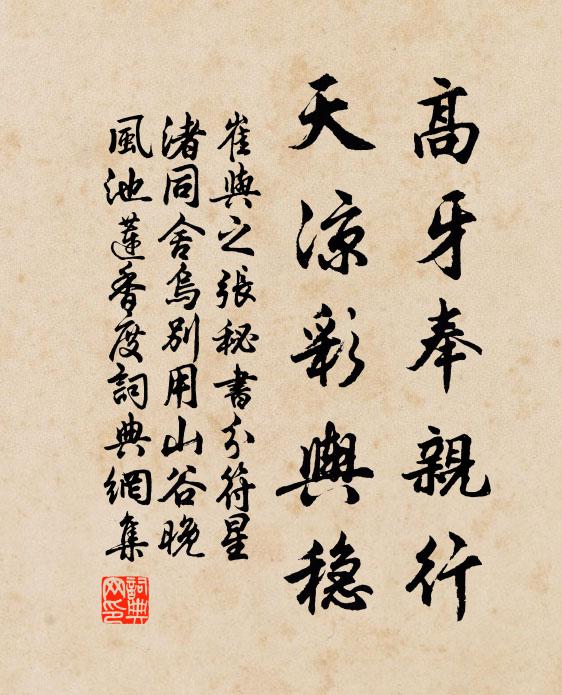 高牙奉親行
天涼彩輿穩
崔與之張秘書分符星
渚同舍鳥別用山谷晚
風池蓮香度詞典網集
詞典
网印